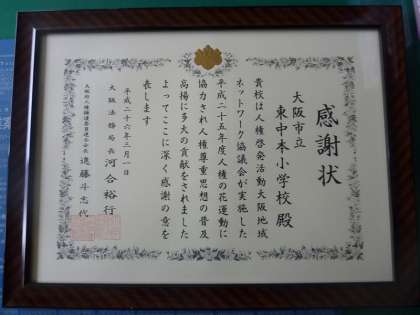 感謝状
大阪市立
東中本小学校 殿
貴校は人権啓発活動大阪地域
ネットワーク協議会が実施した
平成二十五年度人権の花運動に
協力され人権尊重思想の普及
高揚に多大の貢献をされました
よってここに深く感謝の意を
表します
平成二十六年三月一日
大阪法務局長 河合裕行
大阪府人権擁護委員連合会長 進藤斗志代